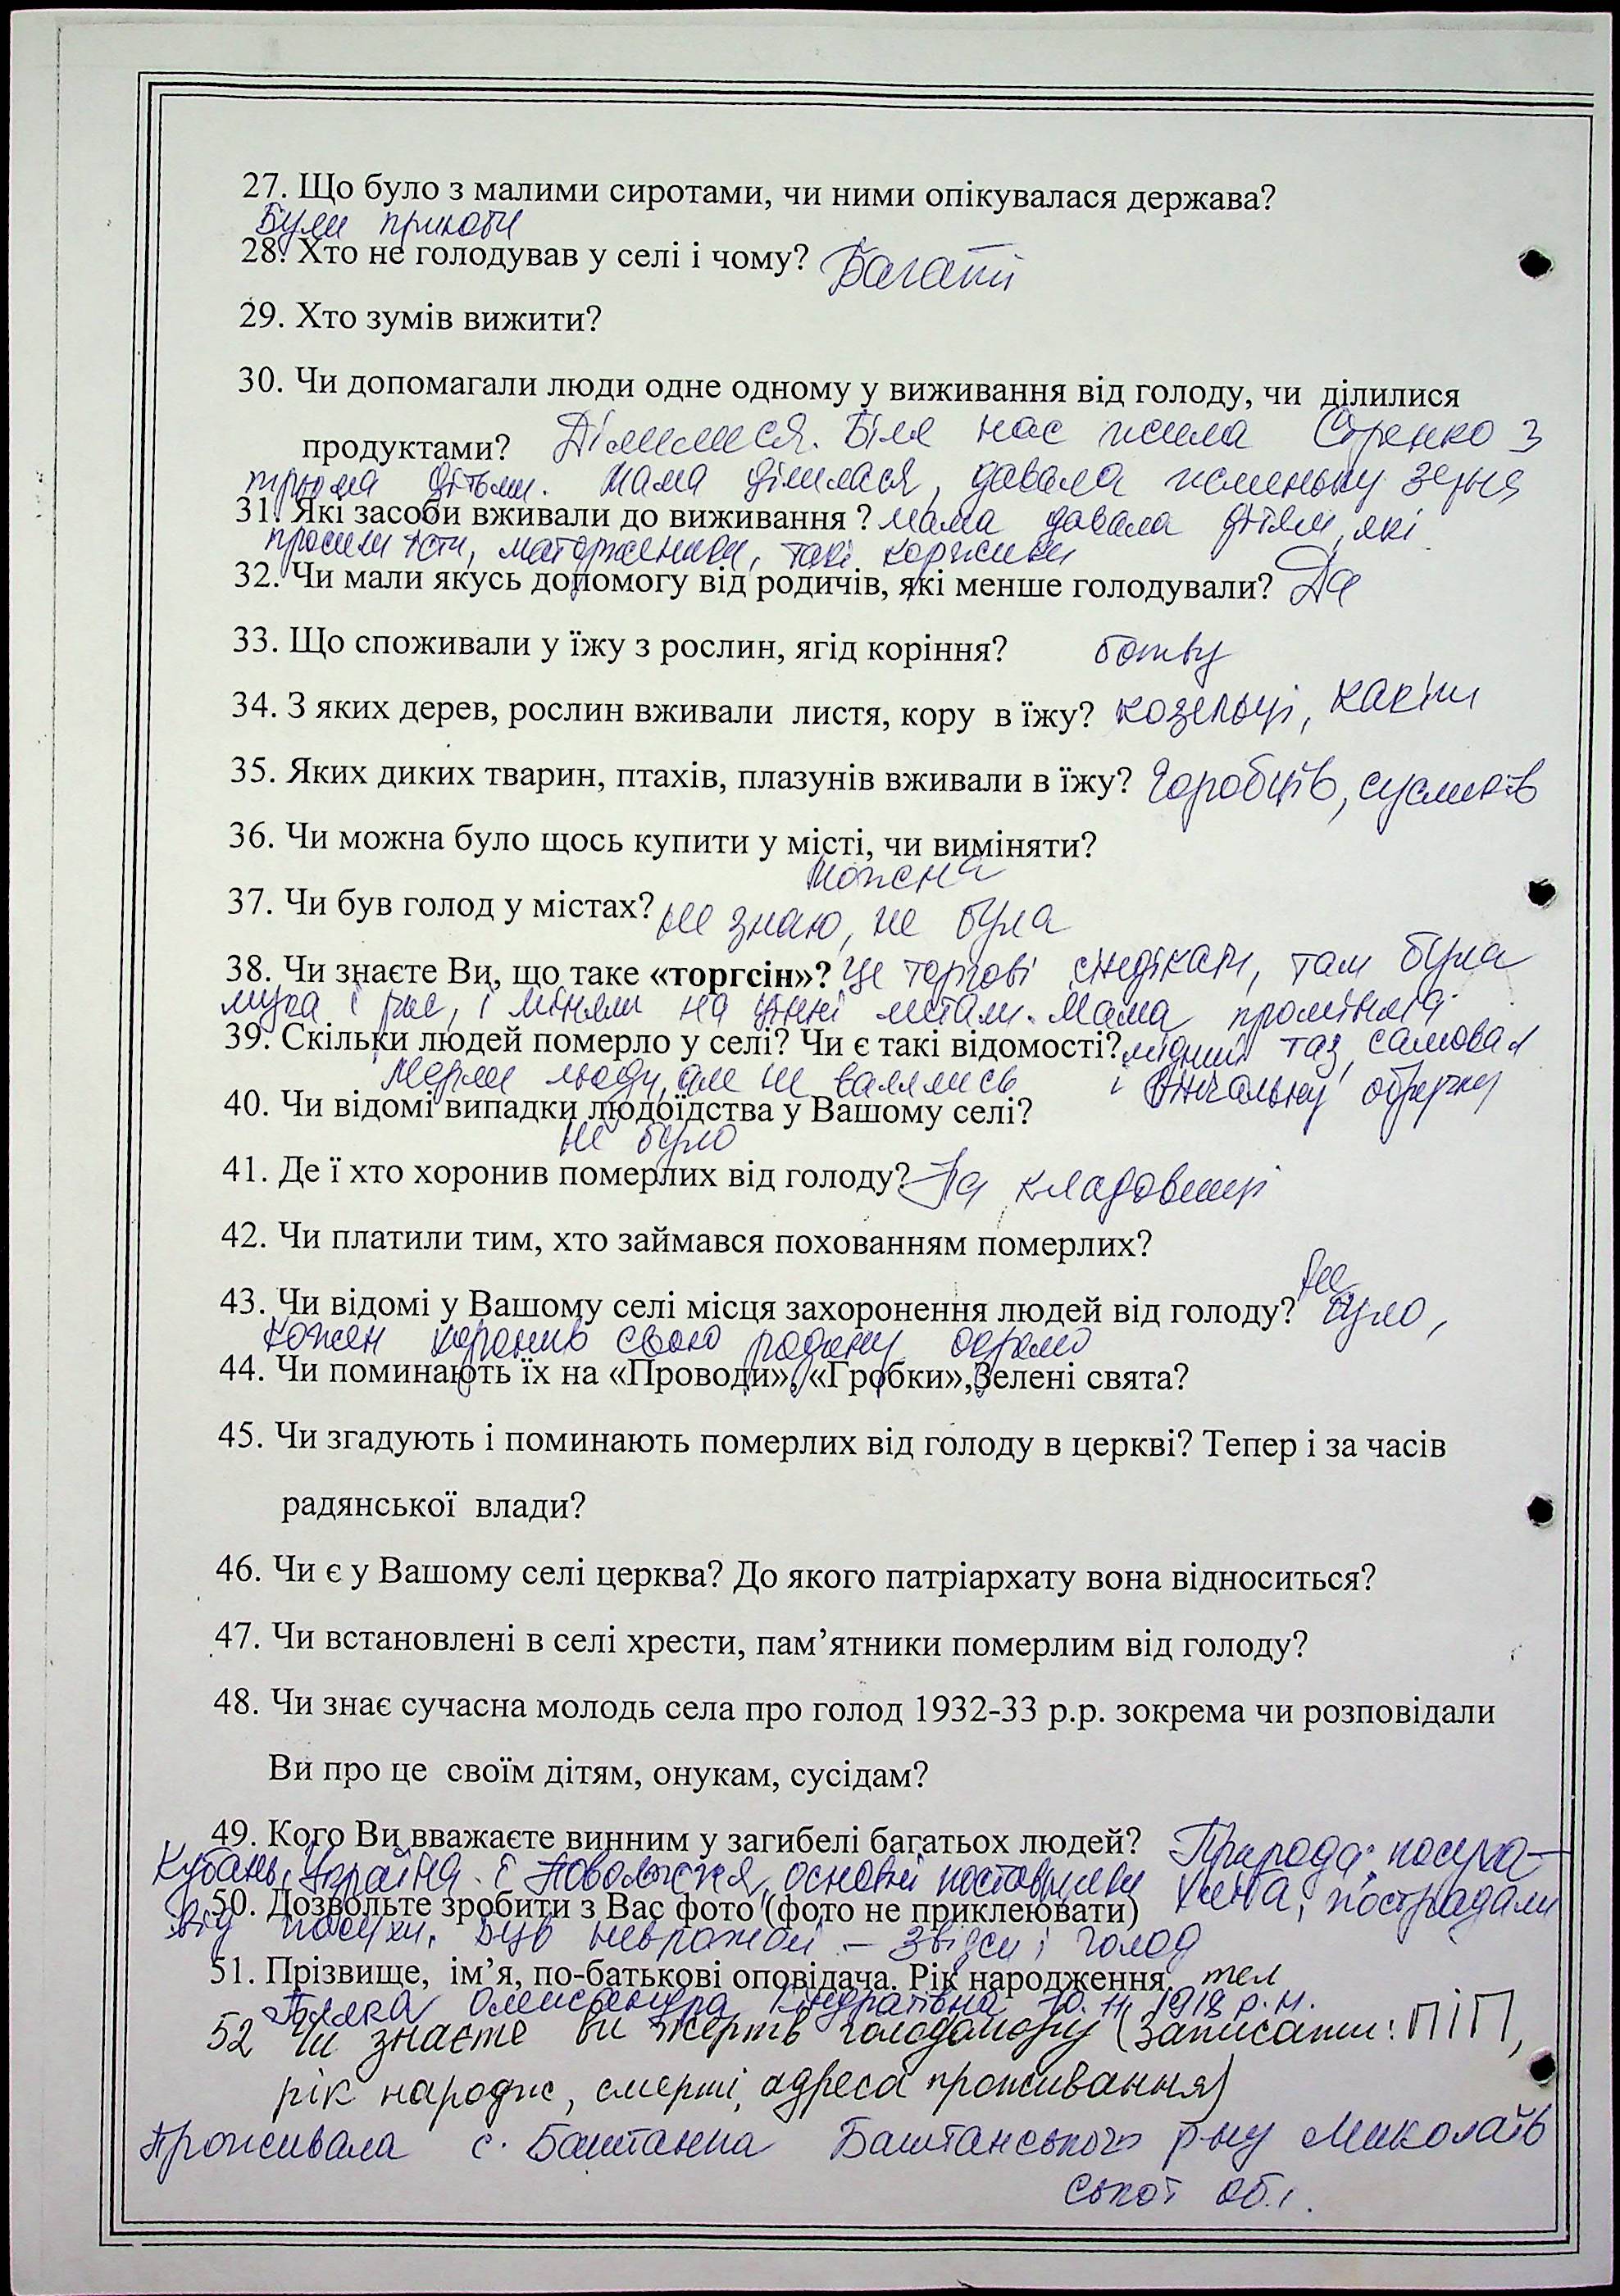 27. Що було з малими сиротами, чи ними опікувалася держава?
Були приюти
28. Хто не голодував у селі і чому? Багаті
29. Хто зумів вижити?
30. Чи допомагали люди одне одному у виживання від голоду, чи ділилися
продуктами? Ділилися. Біля нас жила Соренко з
трьома дітьми. Мама ділилася, давала жменьку зерна
31. Які засоби вживали до виживання ? мама давала дітям, які
просили їсти, маторженики, такі коржики
32. Чи мали якусь допомогу від родичів, які менше голодували? Да
33. Що споживали у їжу з рослин, ягід коріння? ботву
34. З яких дерев, рослин вживали листя, кору в їжу? козельці,
35. Яких диких тварин, птахів, плазунів вживали в їжу? Горобців, сусликів
36. Чи можна було щось купити у місті, чи виміняти?
Можна
37. Чи був голод у містах? не знаю, не була
38. Чи знаєте Ви, що таке «торгсін»? Це торгові сіндікати, там була
мука і рис, і міняли на цінні метали. Мама проміняла
39. Скільки людей померло у селі? Чи є такі відомості? мідний таз, самовар
Мерли люди, але не валялись і вінчальну обручку
40. Чи відомі випадки людоїдства у Вашому селі?
не було
41. Де ї хто хоронив померлих від голоду? На кладовищі
42. Чи платили тим, хто займався похованням померлих?
43. Чи відомі у Вашому селі місця захоронення людей від голоду? Не було,
кожен хоронив свою родину окремо
44. Чи поминають їх на «Проводи», «Гробки»,Зелені свята?
45. Чи згадують і поминають померлих від голоду в церкві? Тепер і за часів
радянської влади?
46. Чи є у Вашому селі церква? До якого патріархату вона відноситься?
47. Чи встановлені в селі хрести, пам’ятники померлим від голоду?
48. Чи знає сучасна молодь села про голод 1932-33 р.р. зокрема чи розповідали
Ви про це своїм дітям, онукам, сусідам?
49. Кого Ви вважаєте винним у загибелі багатьох людей? Природа: посуха –
Кубань, Україна і Поволжжя, основні поставщики хліба, пострадали
50. Дозвольте зробити з Вас фото (фото не приклеювати)
від посухи. Був неврожай – звідси і голод
51. Прізвище, ім’я, по-батькові оповідача. Рік народження, тел
Олександра Кіндратівна 10.11.1918 р.н.
52 Чи знаєте ви жертв голодомору (Записати: ПІП,
рік народж, смерті, адреса проживання)
Проживала с. Баштанка Баштанського р-ну Миколаїв
ської обл.